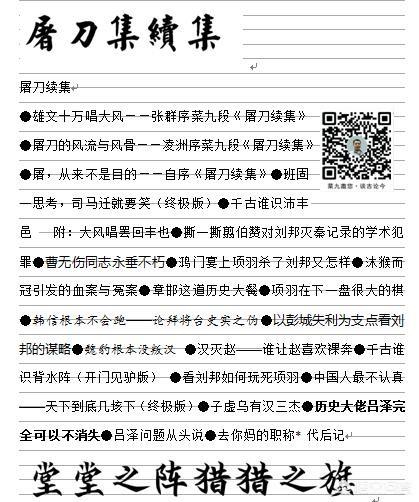 屠刀集續集
屠刀续集
●雄文十万唱大风——张群序菜九段《屠刀续集》
●屠刀的风流与风骨——凌洲序菜九段《屠刀续集》
●屠，从来不是目的——自序《屠刀续集》●班固
一思考，司马迁就要笑（终极版）●千古谁识沛丰
邑 附：大风唱罢回丰也●撕一撕翦伯赞对刘邦灭秦记录的学术犯
罪●曹无伤同志永垂不朽●鸿门宴上项羽杀了刘邦又怎样●沐猴而
冠引发的血案与冤案●章邯这道历史大餐●项羽在下一盘很大的棋
●韩信根本不会跑——论拜将台史实之伪●以彭城失利为支点看刘
邦的谋略●魏豹根本没叛汉 ●汉灭赵——谁让赵喜欢裸奔●千古谁
识背水阵（开门见驴版）●看刘邦如何玩死项羽●中国人最不认真
——天下到底几垓下（终极版）●子虚乌有汉三杰●历史大佬吕泽完
全可以不消失●吕泽问题从头说●去你妈的职称* 代后记
菜九邀您·谈古论今
堂堂之阵猎猎之旗